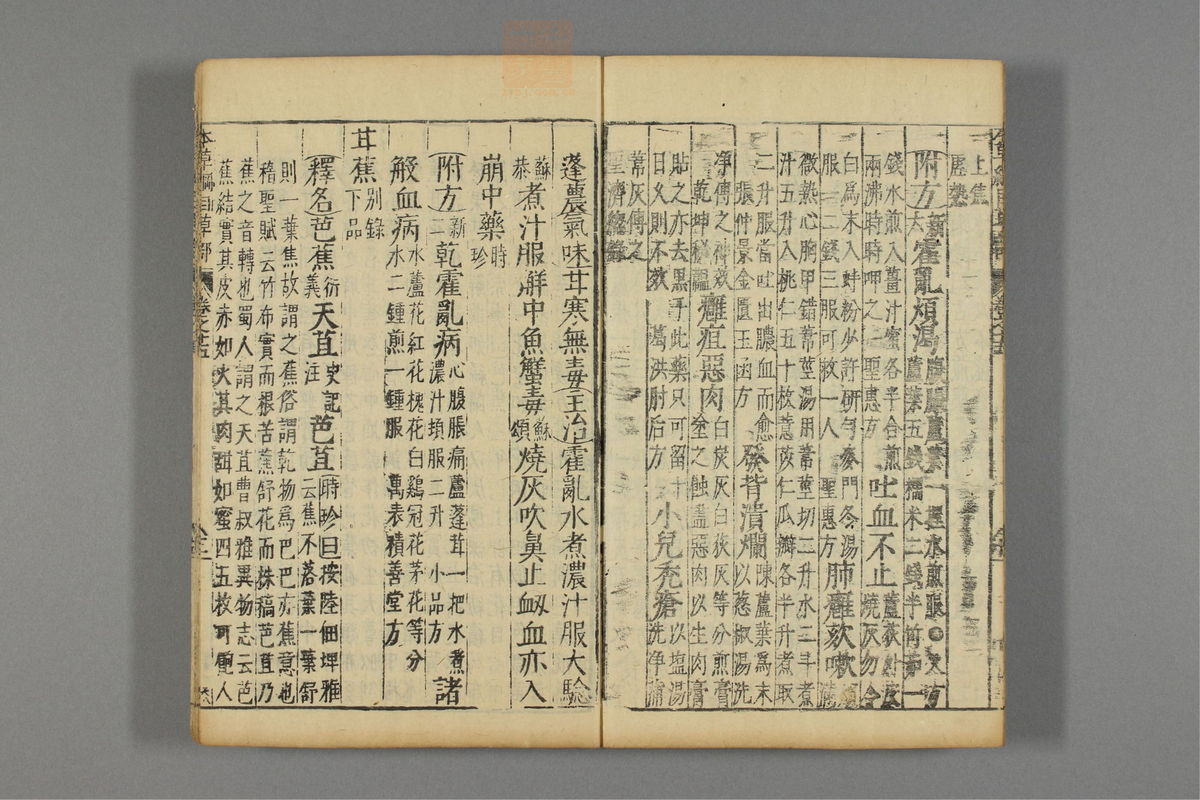 上焦
虛熱
附方新六霍亂煩渴腹脹蘆葉一握水煎服○又方
蘆葉五錢糯米二錢半竹茹一
錢水煎入薑汁蜜各半合煎
兩沸時時呷之 聖惠方
吐血不止蘆荻外皮
燒灰勿令
白爲末入蚌粉少許研勻麥門冬湯
服一二錢三服可救一人 聖惠方
肺癰欬嗽煩滿
微熱心胸甲錯葦莖湯用葦莖切二升水二斗煮
汁五升入桃仁五十枚薏苡仁瓜瓣各半升煮取
二升服當吐出膿血而愈
張仲景金匱玉函方
發背潰爛陳蘆葉爲末
以葱椒湯洗
淨傅之神效
乾坤秘韞
癰疽惡肉白炭灰白荻灰等分煎膏
塗之蝕盡惡肉以生肉膏
貼之亦去黑子此藥只可留十
日久則不效 葛洪肘后方
小兒禿瘡以塩湯
洗淨蒲
葦灰傅之
聖濟總錄
蓬農氣味甘寒無毒主治霍亂水煮濃汁服大驗
蘇恭煮汁服解中魚蟹毒蘇頌燒灰吹鼻止衄血亦入
崩中藥時珍
附方新二乾霍亂病心腹脹痛蘆蓬茸一把水煮
濃汁頓服二升 小品方諸
般血病水蘆花紅花槐花白鷄冠花茅花等分
水二鍾煎一鍾服 萬表積善堂方
甘蕉別錄下品
釋名芭蕉衍義天苴史記注芭苴時珍曰按陸佃埤雅
云蕉不落葉一葉舒
則一葉焦故謂之蕉俗謂乾物爲巴巴亦蕉意也
稽聖賦云竹布實而根苦蕉舒花而株槁芭苴乃
蕉之音轉也蜀人謂之天苴曹叔雅異物志云芭
蕉結實其皮赤如火其肉甜如蜜四五枚可飽人
本草綱目草部 卷之十五